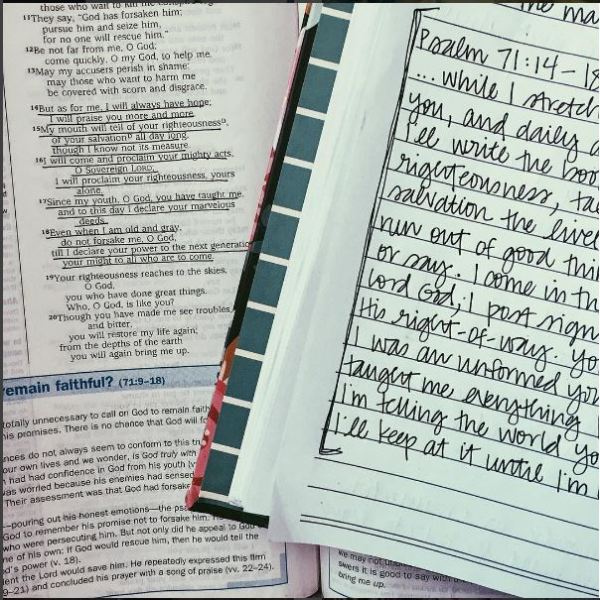 those who wait to kill me
11They say, "God has forsaken him;
pursue him and seize him,
for no one will rescue him."
12Be not far from me, O God;
come quickly, O my God, to help me.
13May my accusers perish in shame;
may those who want to harm me
be covered with scorn and disgrace.
14But as for me, I will always have hope;
I will praise you more and more.
15My mouth will tell of your righteousness,
of your salvation all day long,
though I know not its measure.
16I will come and proclaim your mighty acts,
O Sovereign LORD;
I will proclaim your righteousness, yours
alone.
17Since my youth, O God, you have taught me,
and to this day I declare your marvelous
deeds.
18Even when I am old and gray,
do not forsake me, O God,
till I declare your power to the next generatio
your might to all who are to come.
19Your righteousness reaches to the skies,
O God,
you who have done great things.
Who, O God, is like you?
20Though you have made me see troubles,
and bitter,
you will restore my life again;
from the depths of the earth
you will again bring me up.
emain faithful? (71:9–18)
totally unnecessary to call on God to remain faith
his promises. There is no chance that God will fo
nces do not always seem to conform to this tr
our own lives and we wonder, is God truly with
had had confidence in God from his youth (v
was worried because his enemies had sensed
Their assessment was that God had forsake
—pouring out his honest emotions—the psa
God to remember his promise not to forsake him.
who were persecuting him. But not only did he appeal to God
ne of his own: If God would rescue him, then he would tell the
d's power (v. 18).
lent the Lord would save him. He repeatedly expressed this firm
9–21) and concluded his prayer with a song of praise (vv. 22–24).
the ma
Psalm 71:14-18
... while I stretch
you, and daily a
I'll write the boo
righteousness, ta
salvation the livel
run out of good thin
or say. I come in th
Lord God, I post sign
His right-of-way. yo
I was an unformed you
taught me everything
I'm telling the world yo
I'll keep at it until I'm
we may not
swers it is good to say with
bring me up.